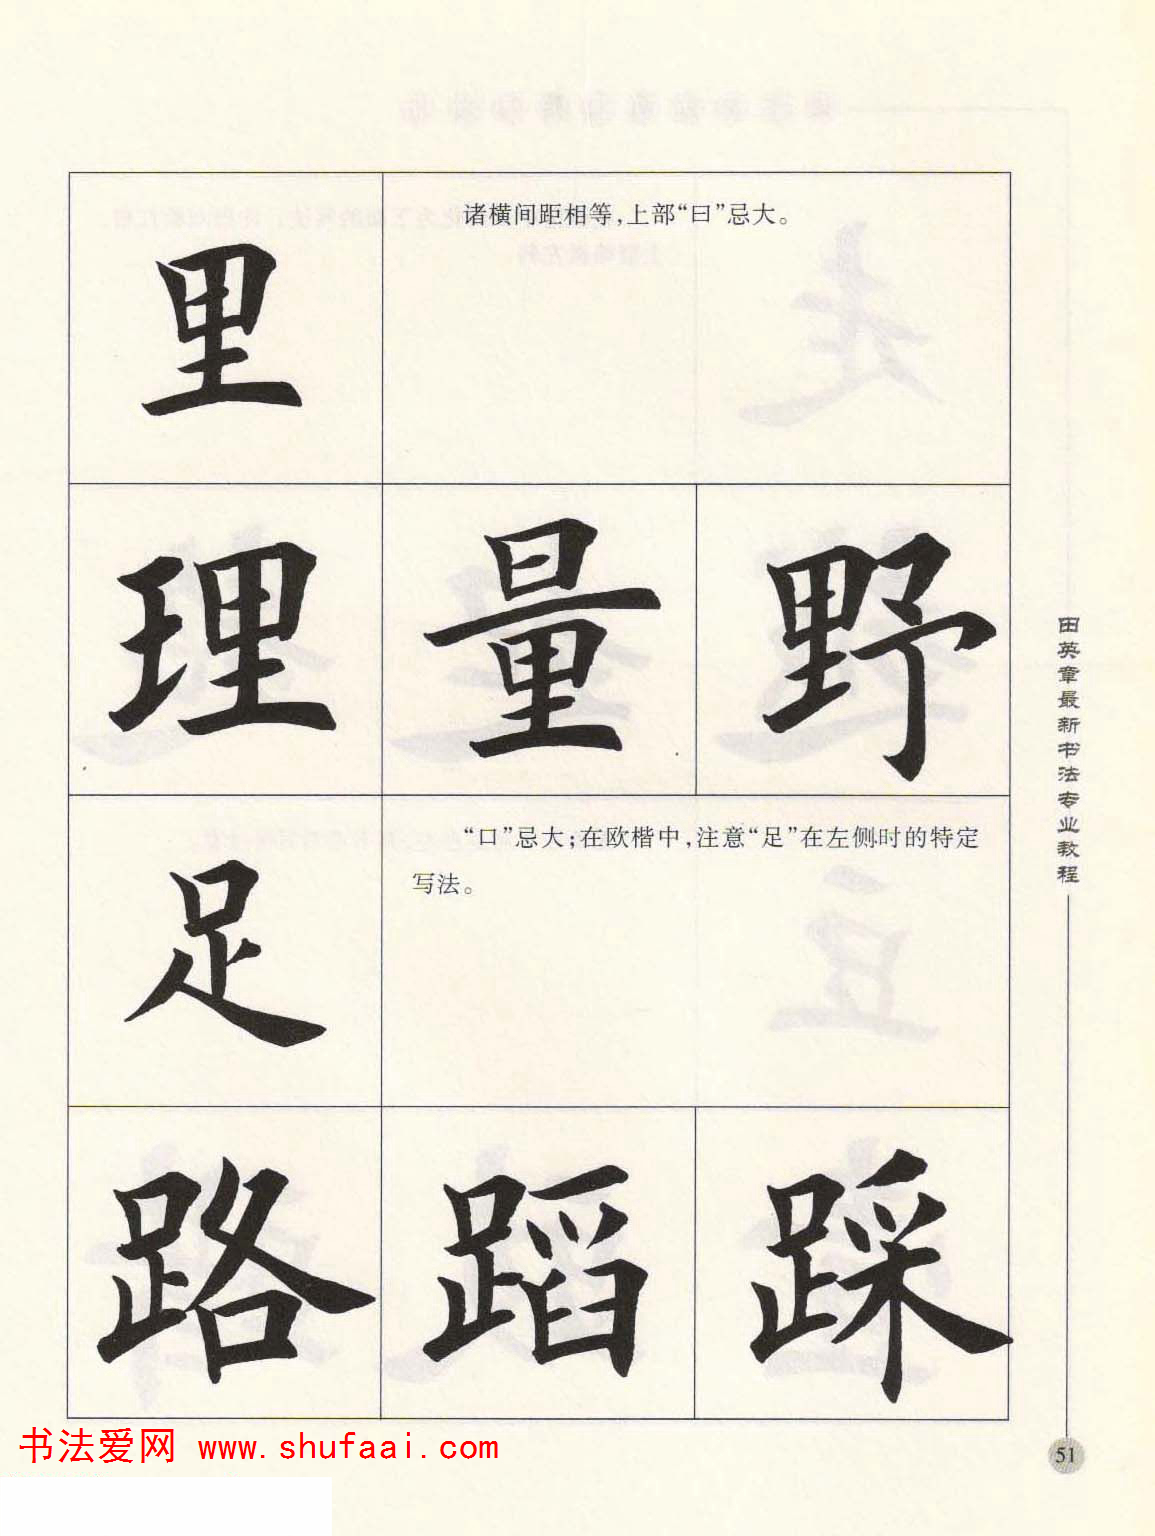 里
诸横间距相等，上部“曰”忌大。
理 量 野
足
“口”忌大；在欧楷中，注意“足”在左侧时的特定
写法。
路 蹈 踩
田英章最新书法专业教程
51
书法爱网 www.shufaai.com